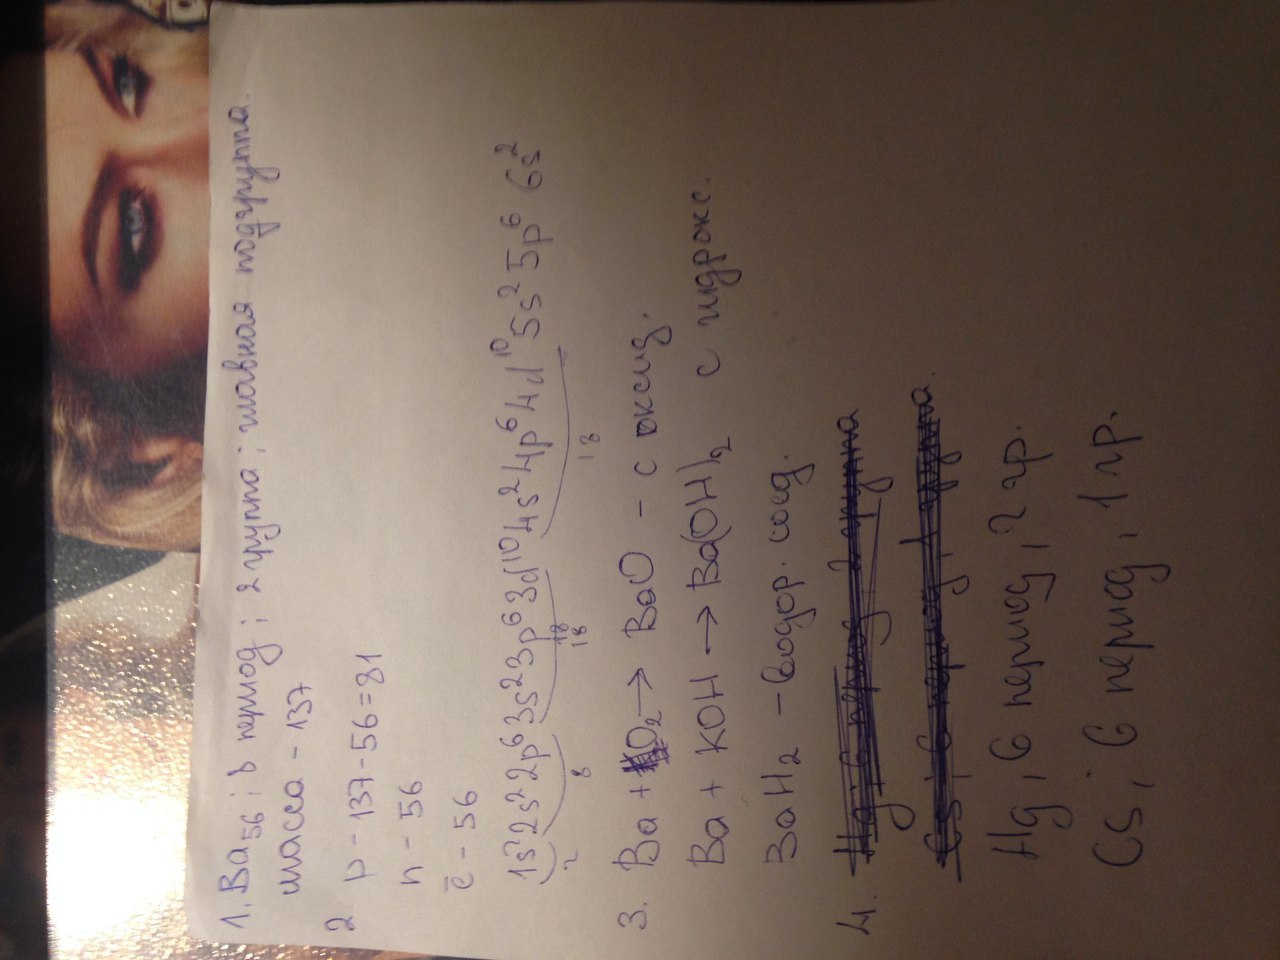 1. Ba₅₆ ; 6 период ; 2 группа ; главная подгруппа.
масса - 137
2. p - 137 - 56 = 81
n - 56
ē - 56
1s²2s²2p⁶3s²3p⁶3d¹⁰4s²4p⁶4d¹⁰5s²5p⁶6s²
2 8 18 18 18
3. Ba + O₂ → BaO - с оксид.
Ba + KOH → Ba(OH)₂ с гидрокс.
BaH₂ - водор. соед.
4. Hg ; 6 период 2 группа
Cs ; 6 период 1 группа.
Hg, 6 период, 2 гр.
Cs, 6 период, 1 гр.